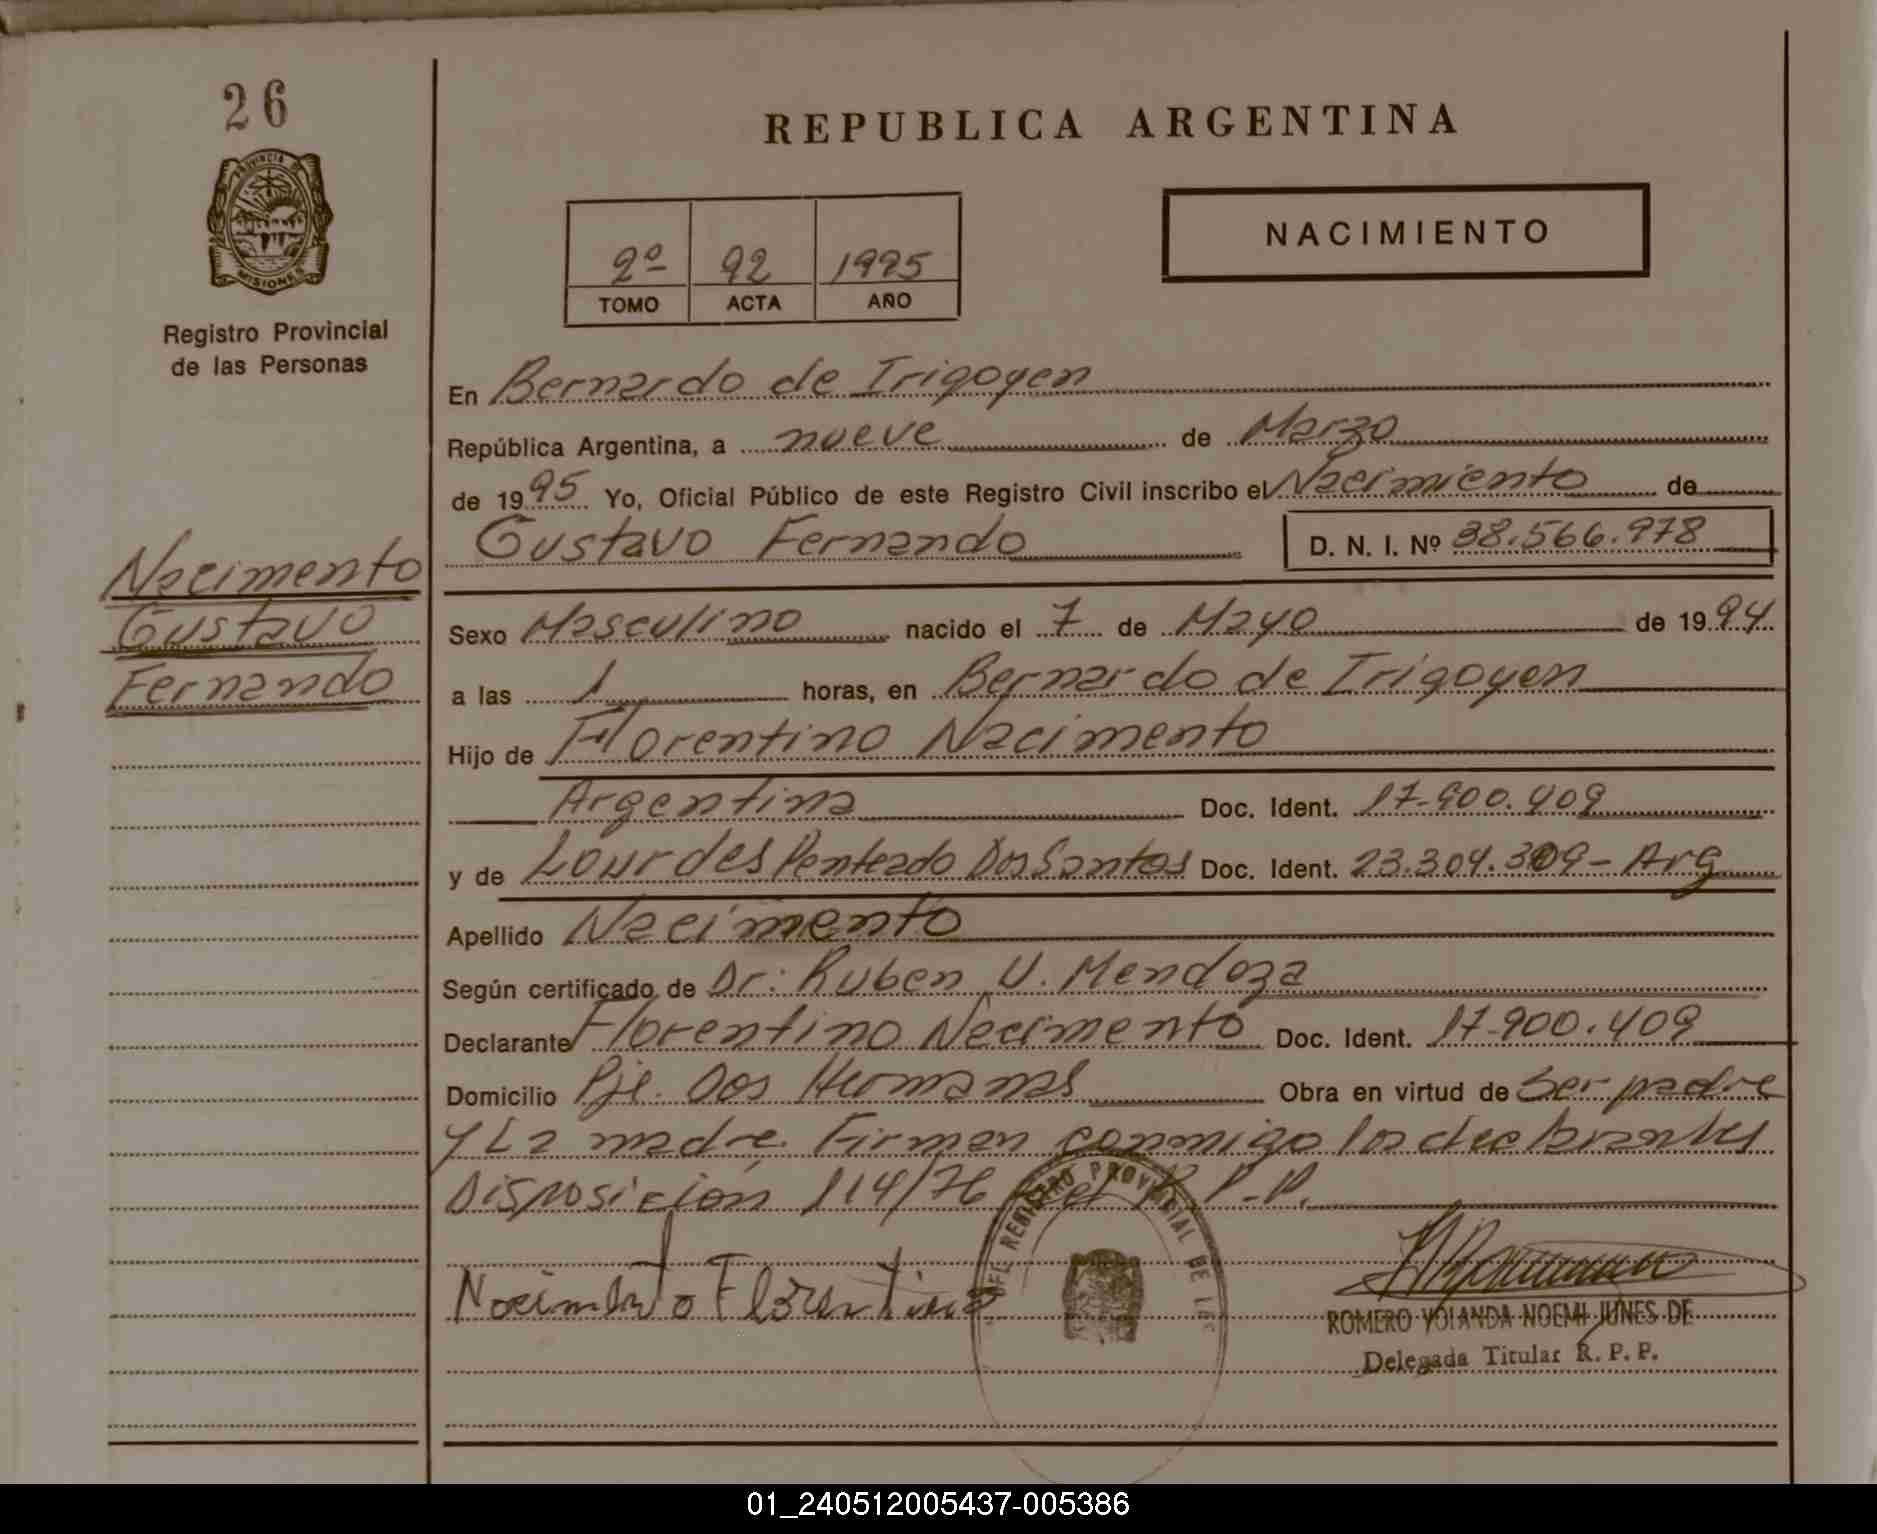 26
PROVINCIA DE
MISIONES
Registro Provincial
de las Personas
Nacimento
Gustavo
Fernando
REPUBLICA ARGENTINA
2º 92 1995
TOMO ACTA AÑO
NACIMIENTO
En Bernardo de Irigoyen
República Argentina, a nueve de Marzo
de 1995 Yo, Oficial Público de este Registro Civil inscribo el Nacimiento de
Gustavo Fernando D. N. I. Nº 38.566.978
Sexo Masculino nacido el 7 de Mayo de 1994
a las 1 horas, en Bernardo de Irigoyen
Hijo de Florentino Nacimento
Argentina Doc. Ident. 17.900.409
y de Lourdes Penteado Dos Santos Doc. Ident. 23.304.309 - Arg
Apellido Nacimento
Según certificado de Dr: Ruben U. Mendoza
Declarante Florentino Nacimento Doc. Ident. 17.900.409
Domicilio Pje. Dos Hermanas Obra en virtud de Ser padre
y La madre. Firman conmigo los declarantes
Disposición 114/76 del R. P.-P.
Nacimento Florentino
DEL REGISTRO PROVINCIAL DE LAS
ROMERO YOLANDA NOEMI JUNES DE
Delegada Titular R. P. P.
01_240512005437-005386